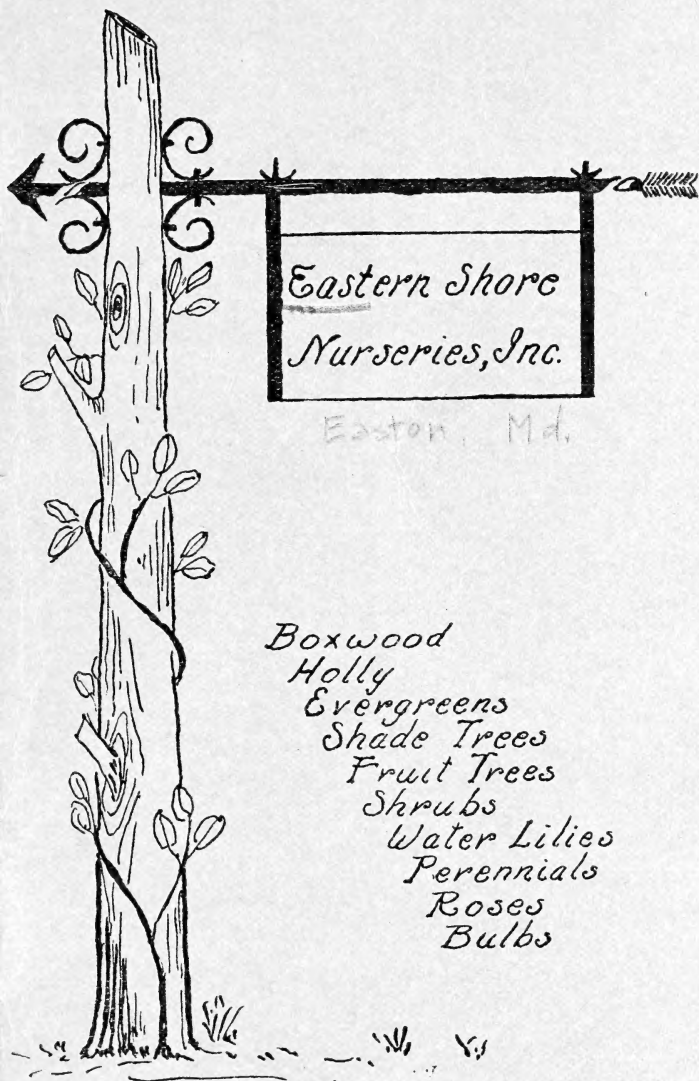 Eastern Shore
Nurseries, Inc.
Easton, Md.
Boxwood
Holly
Evergreens
Shade Trees
Fruit Trees
Shrubs
Water Lilies
Perennials
Roses
Bulbs